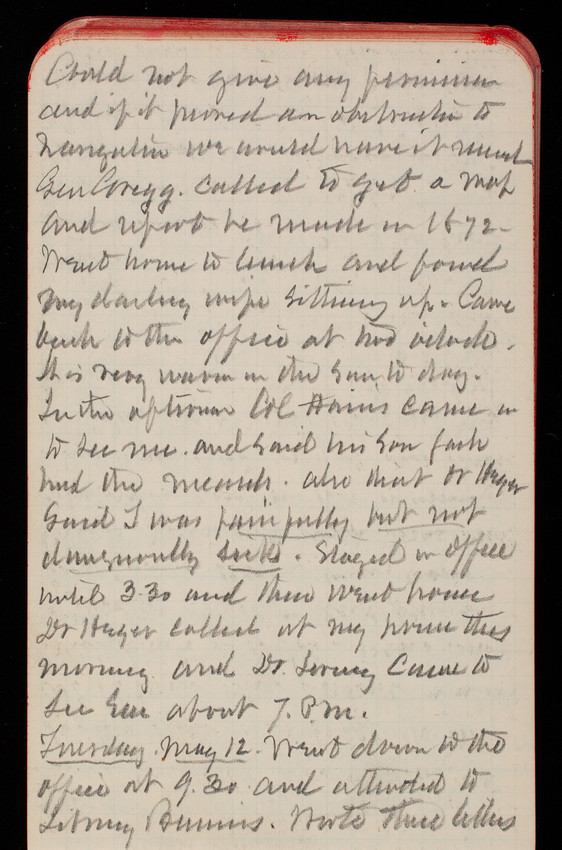 Could not give any permission
and if it proved an obstruction to
navigation we would have it removed
Gen Gregg. called to get a map
and report he made in 1872-
Went home to lunch and found
my darling wife sitting up. Came
back to the office at two oclock.
It is very warm in the sun to day.
In the afternoon Col Hains came in
to see me. and said his son Jack
had the measels. also that Dr Heger
said I was painfully but not
dangerously sick. Stayed in office
until 3.30 and then went home
Dr Heger called at my home this
morning and Dr. Loring came to
see about 7. P.m.
Tuesday. May 12. Went down to the
office at 9.30 and attended to
Business. Wrote three letters